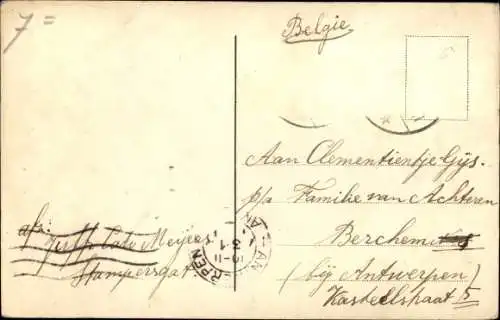 7=
Belgie
Aan Clementientje Gijs.
p/a Familie van Achteren
Berchem
(bij Antwerpen)
Kasteelstraat 5
afs:
Meijers
Stampersgat